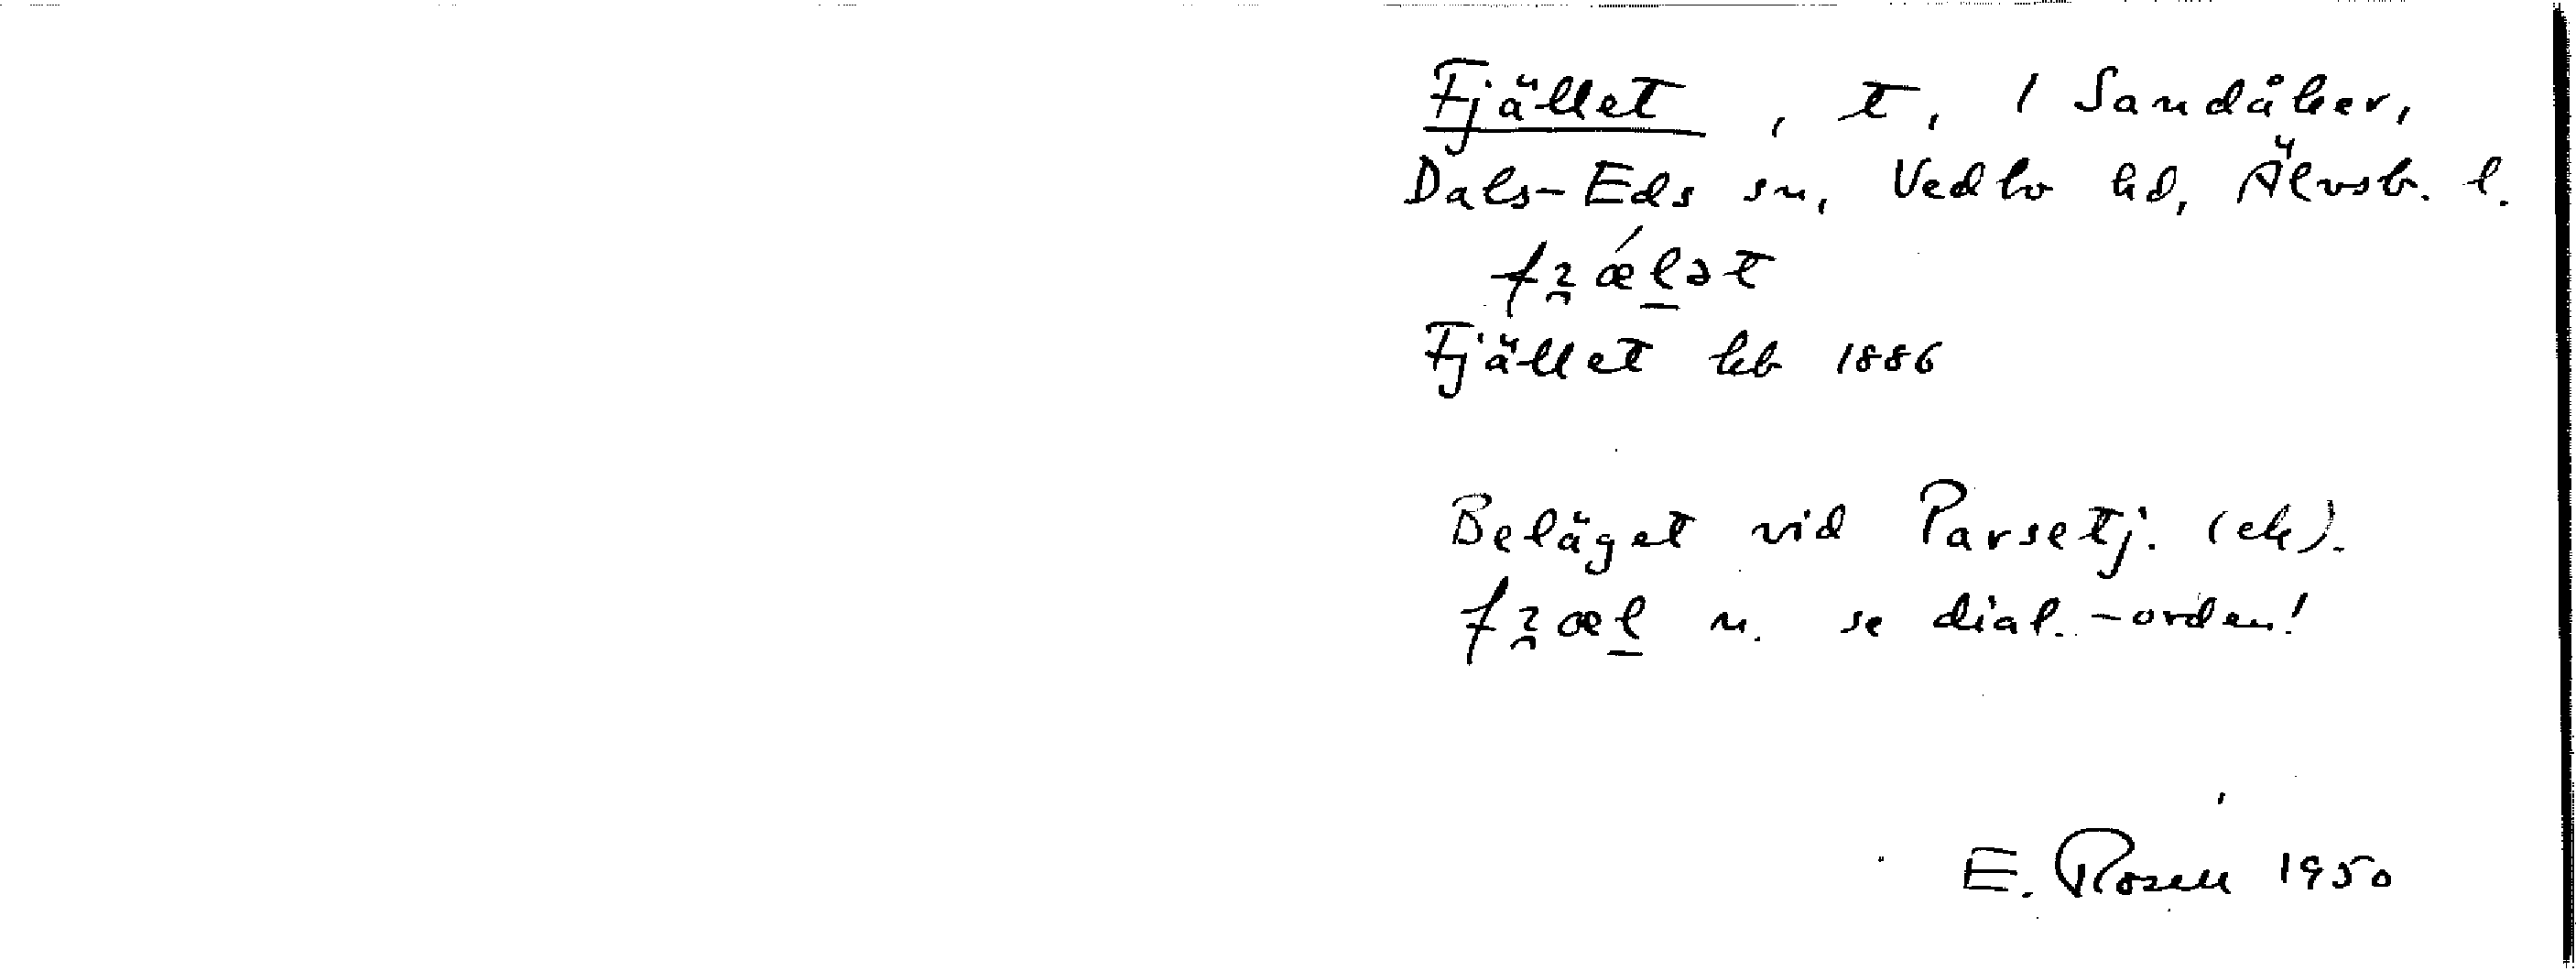 Fjället, t, / Sandåker,
Dals-Eds sn, Vedbo hd, Älvsb. l.
fȷǽlət
Fjället kb 1886
Beläget vid Parsetj. (ek).
fȷæl n. se dial.-orden!
E. Rosell 1950